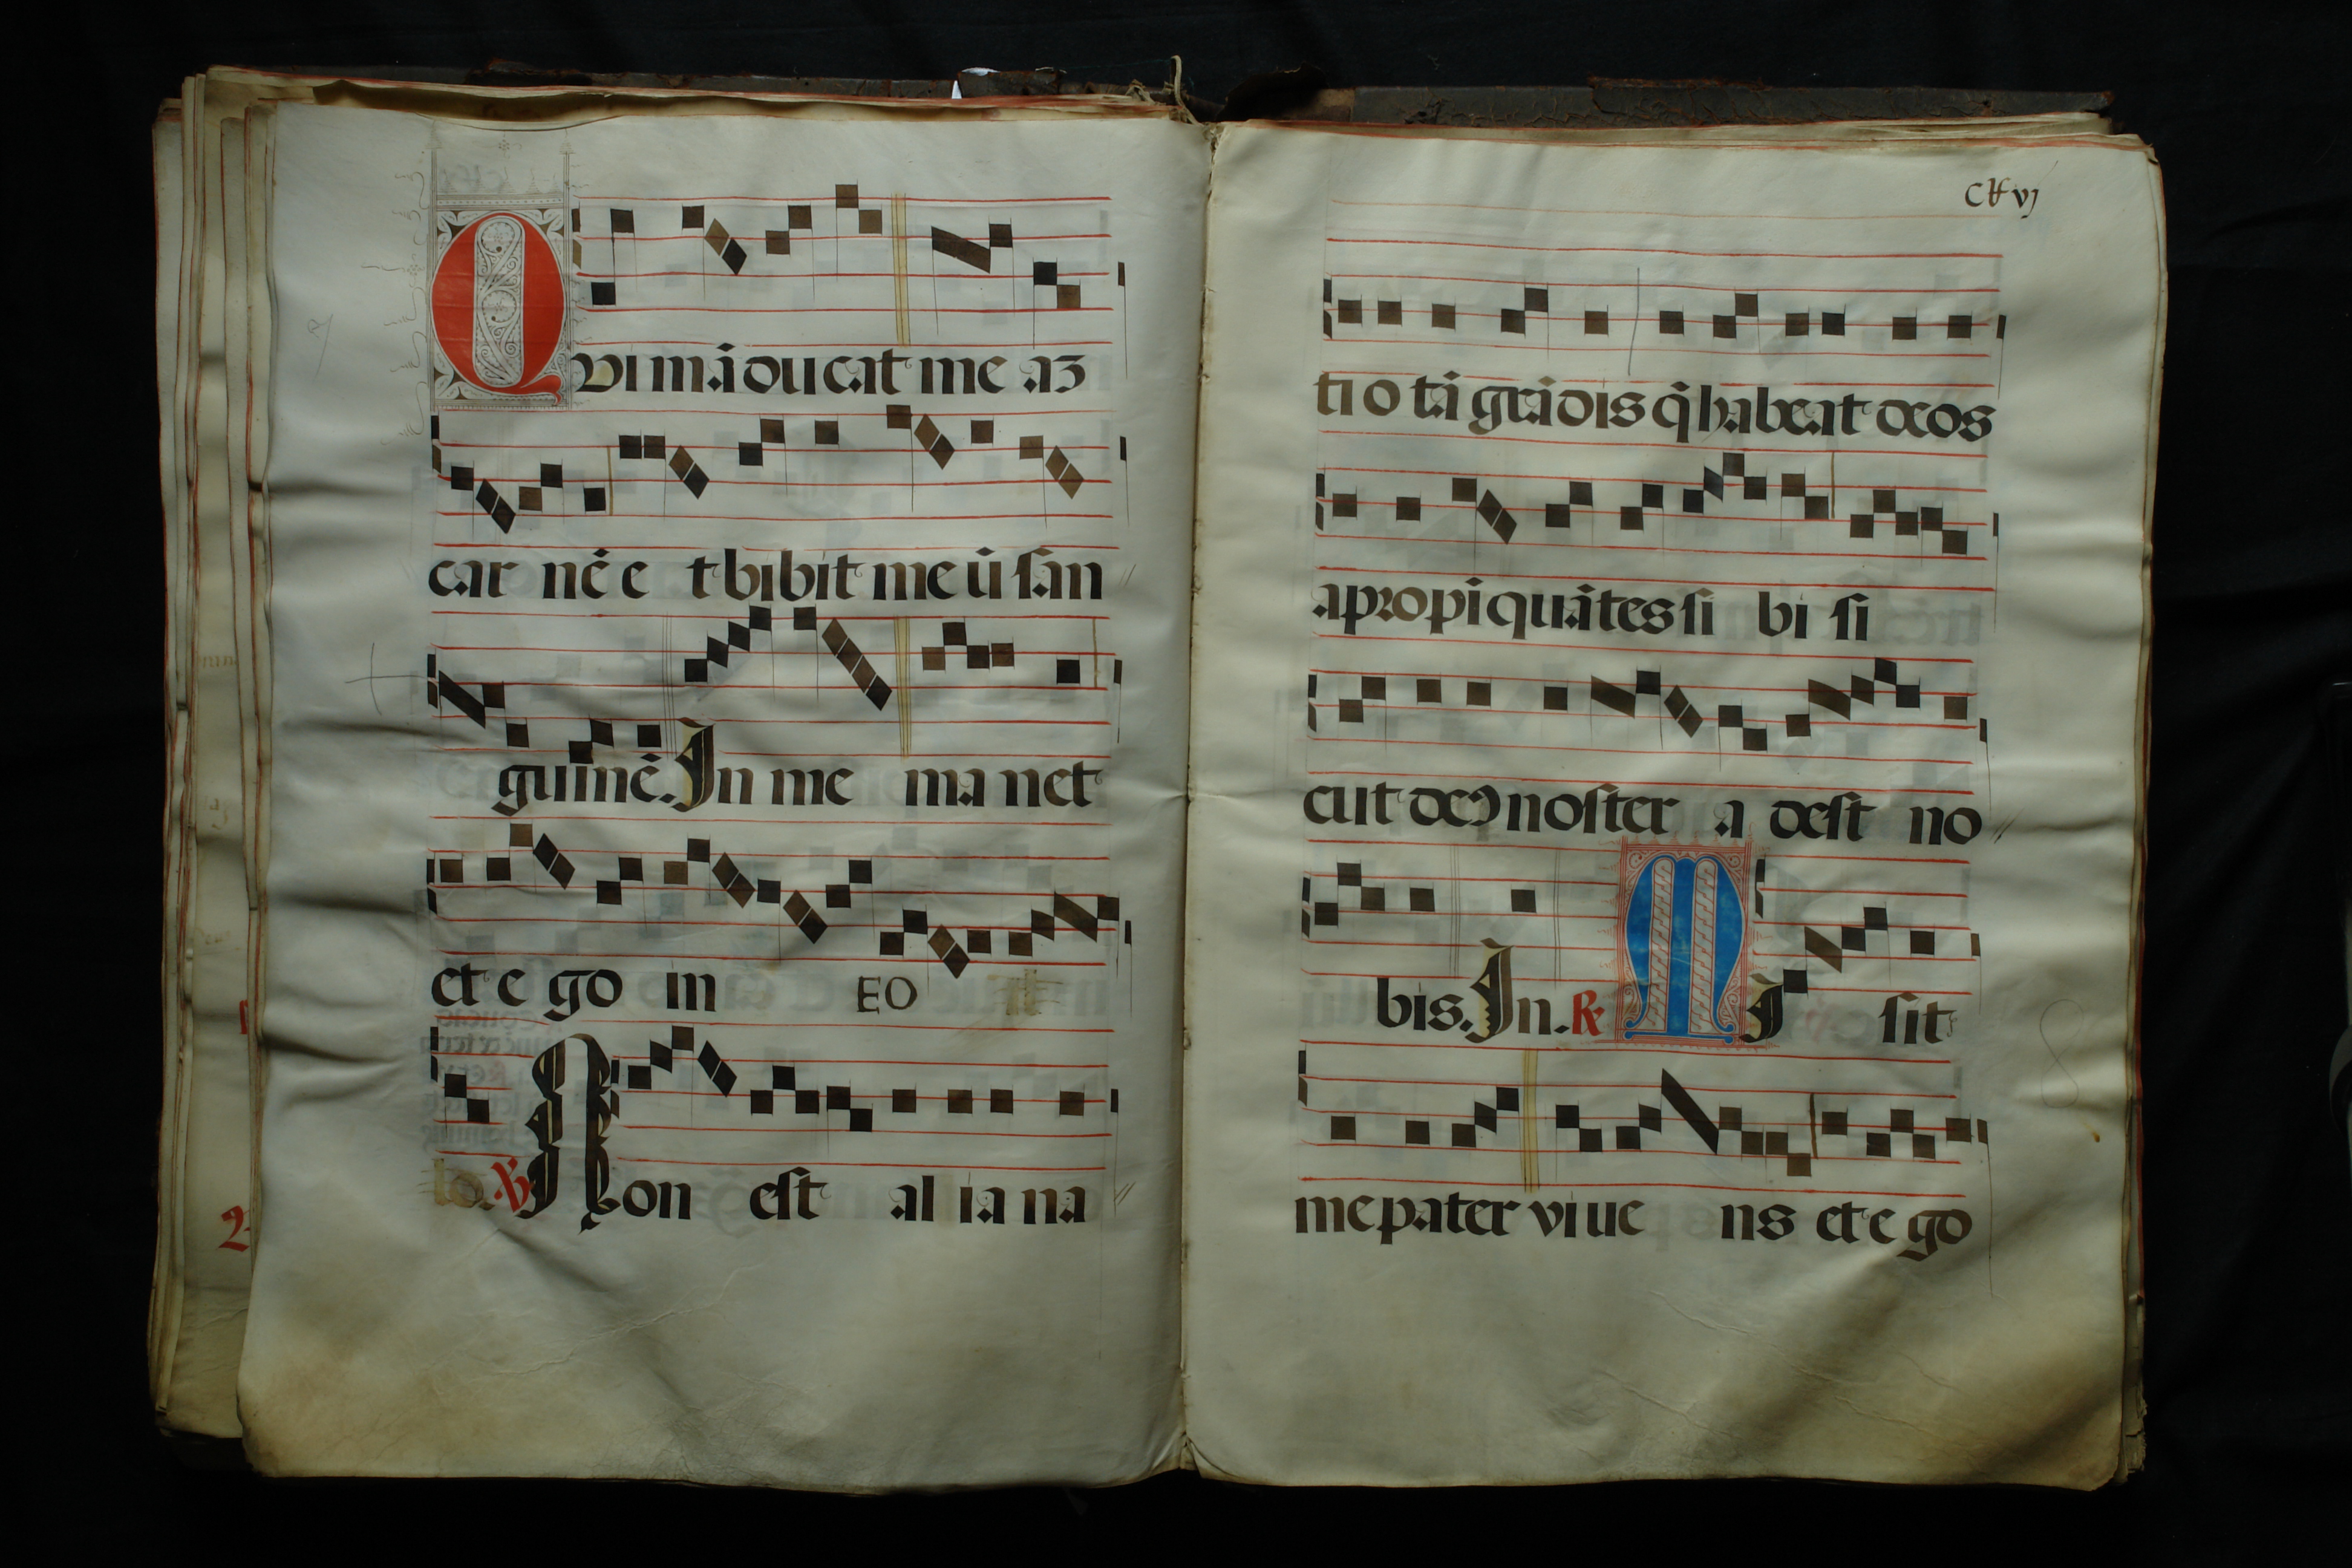 QVI mādu cat me aʒ
car nē e t bibit me ū ſan
guinē. In me ma net
et e go in EO
lo. ℣ Non eſt al ia na
clxvj
ti o tā grādis q̄ habeat deos
apropīquātes ſi bi ſi
cut deꝰ noſter a deſt no
bis. In. ℟ MI ſit
me pater viue ns et e go